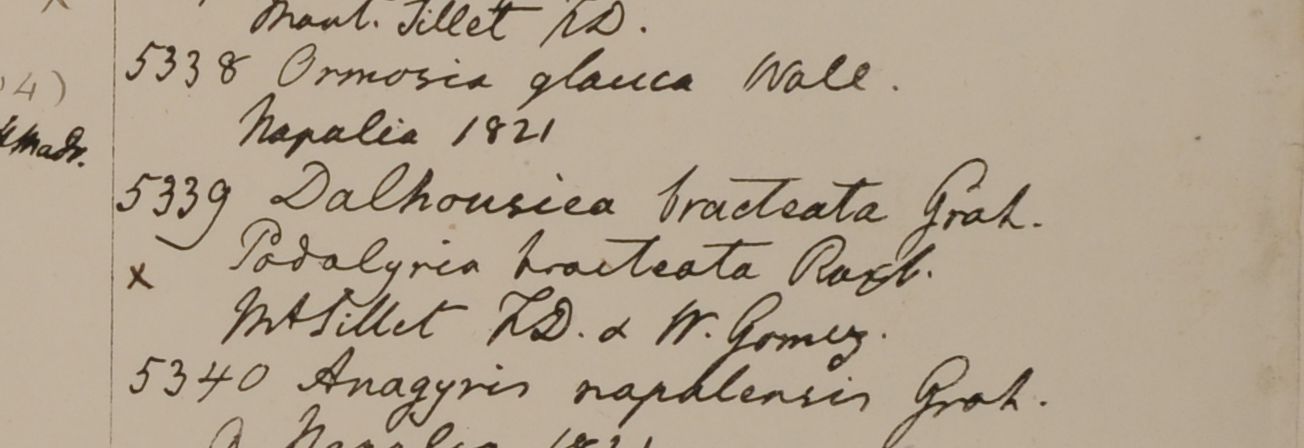 Mont. Sillet FD.
5338 Ormosia glauca Wall.
Napalia 1821
5339 Dalhousiea bracteata Grah.
x Podalyria bracteata Roxb.
Mt Sillet FD. & W. Gomez.
5340 Anagyris napalensis Grah.
Napalia 1821